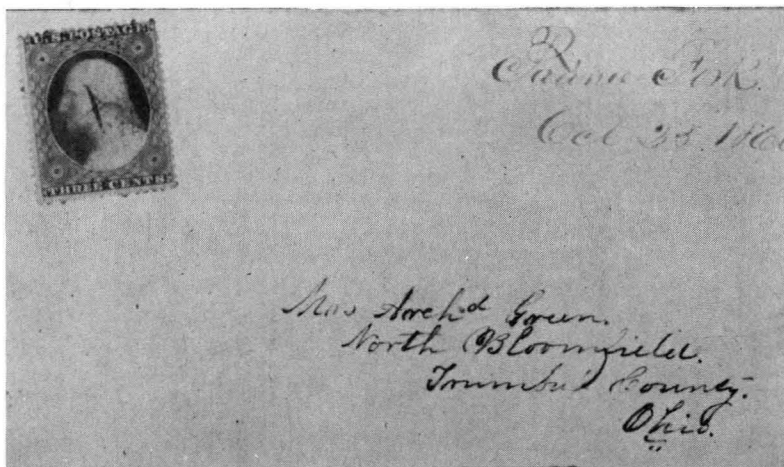 U.S. POSTAGE
THREE CENTS
Fork.
Oct
Mrs Archd Green.
North Bloomfield.
Trumbul County.
Ohio.